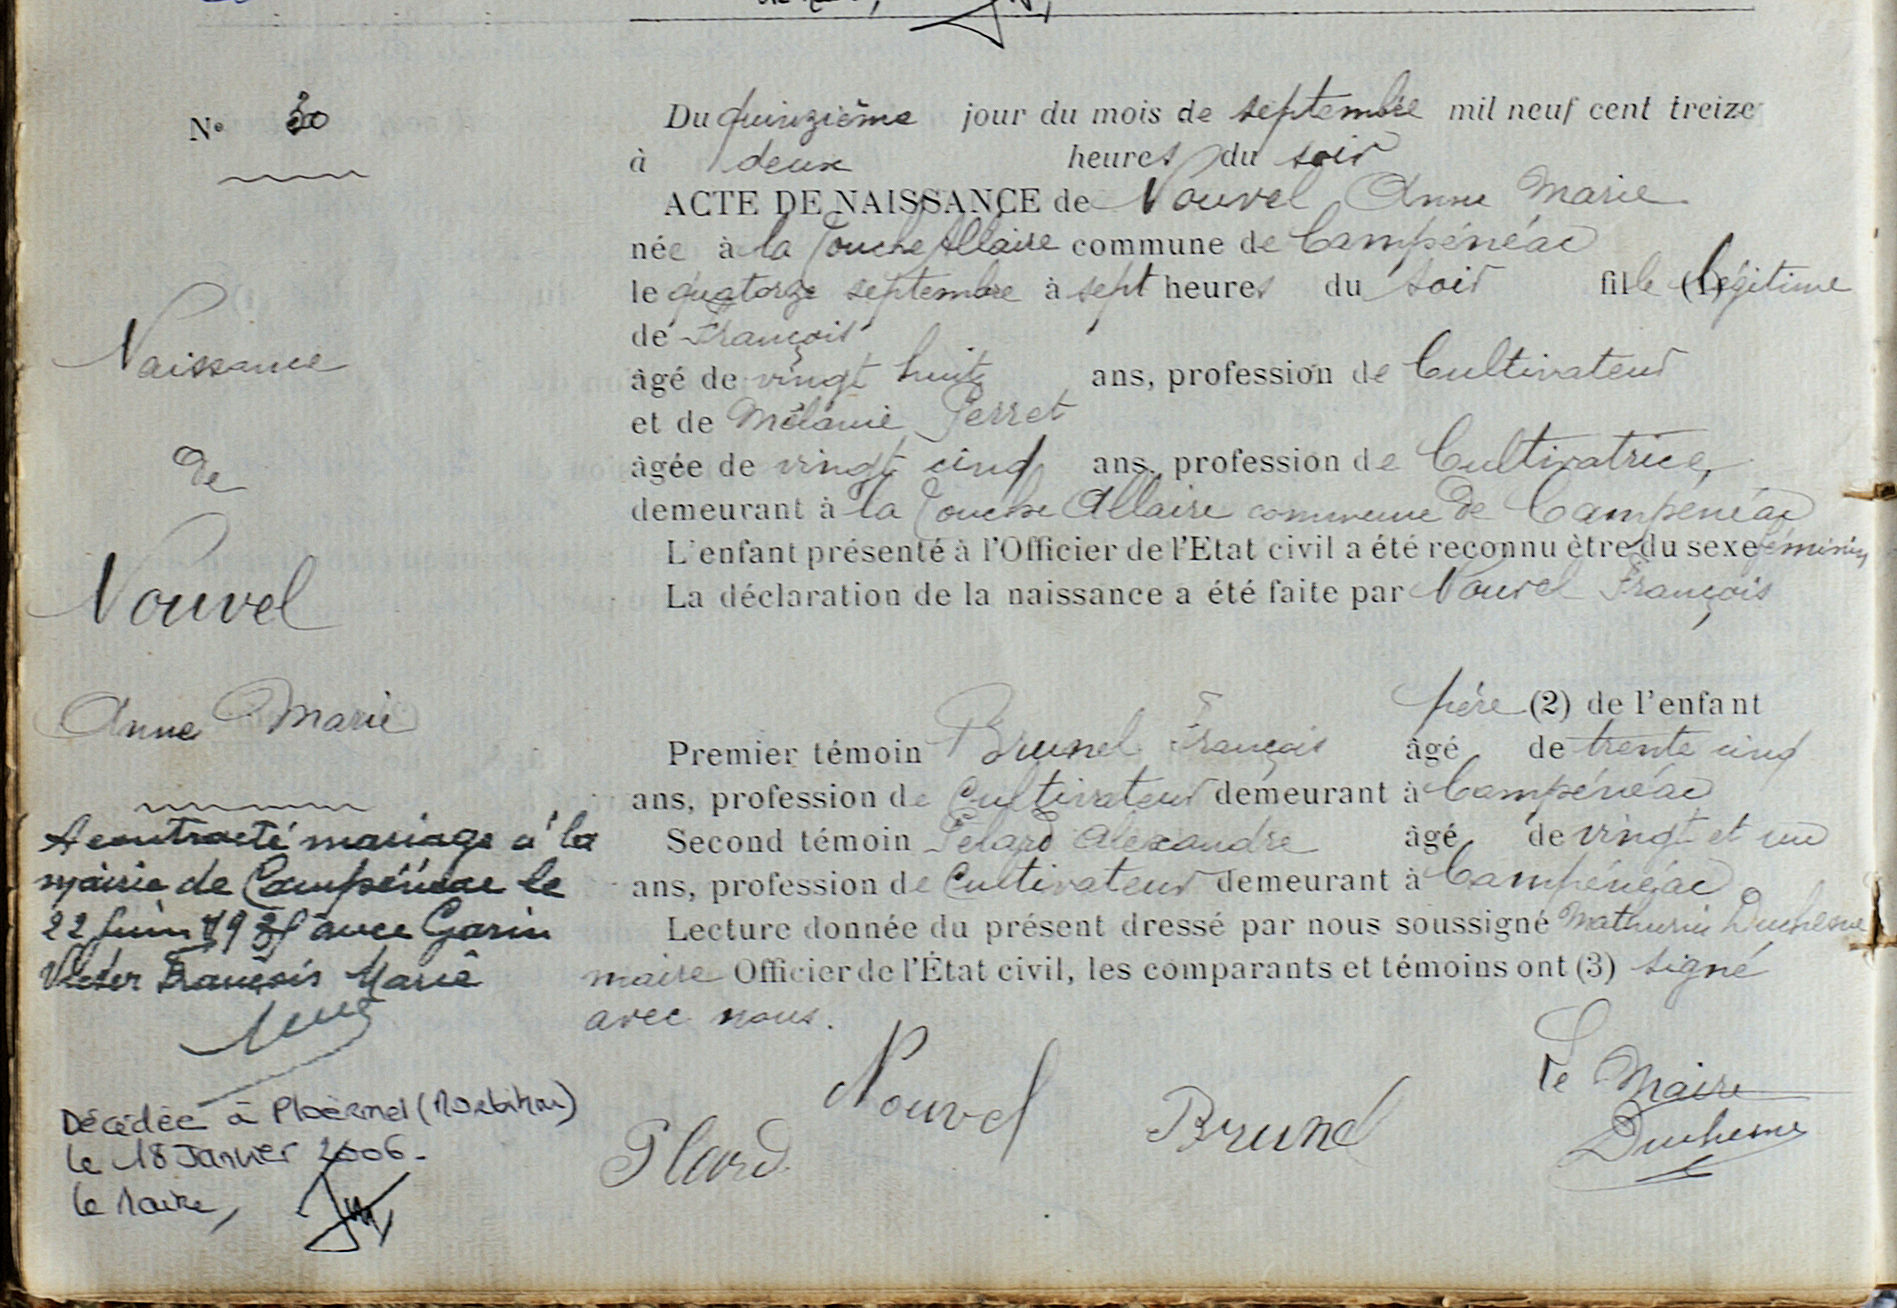 N° 30
Naissance
de
Nouvel
Anne Marie
A contracté mariage à la
mairie de Campénéac le
22 juin avec Garin
Victor François Marie
Décédée à Ploërmel (Morbihan)
le 18 Janvier 2006.
le Maire,
Du quinzième jour du mois de septembre mil neuf cent treize
à deux heures du soir
ACTE DE NAISSANCE de Nouvel Anne Marie
née à la Touche Allaire commune de Campénéac
le quatorze septembre à sept heures du soir fille (1) légitime
de François
âgé de vingt huit ans, profession de Cultivateur
et de Mélanie Perret
âgée de vingt cinq ans, profession de Cultivatrice,
demeurant à la Touche Allaire commune de Campénéac
L'enfant présenté à l'Officier de l'Etat civil a été reconnu être du sexe féminin
La déclaration de la naissance a été faite par Nouvel François,
père (2) de l'enfant
Premier témoin Brunel François âgé de trente cinq
ans, profession de Cultivateur demeurant à Campénéac
Second témoin Pelard Alexandre âgé de vingt et un
ans, profession de Cultivateur demeurant à Campénéac
Lecture donnée du présent dressé par nous soussigné Mathurin Duchesne
maire Officier de l'État civil, les comparants et témoins ont (3) signé
avec nous.
Nouvel
Le Maire
Plard
Brunel
Duchesne